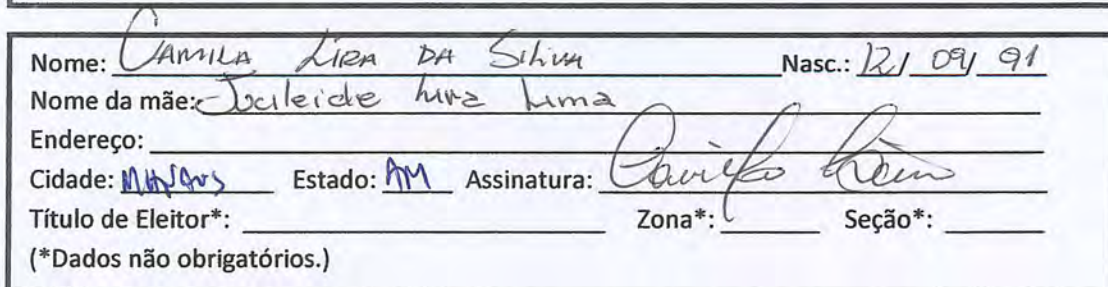 Nome: CAMILA LIRA DA SILVA Nasc.: 12/ 09/ 91
Nome da mãe: Jucileide Lira Lima
Endereço:
Cidade: MANAUS Estado: AM Assinatura: Camila Lira
Título de Eleitor*: Zona*: Seção*:
(*Dados não obrigatórios.)